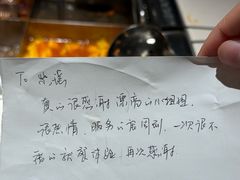 To 米滋
真的很感谢漂亮的小姐姐
很热情,服务的很周到,一次很不
错的就餐体验,再次感谢